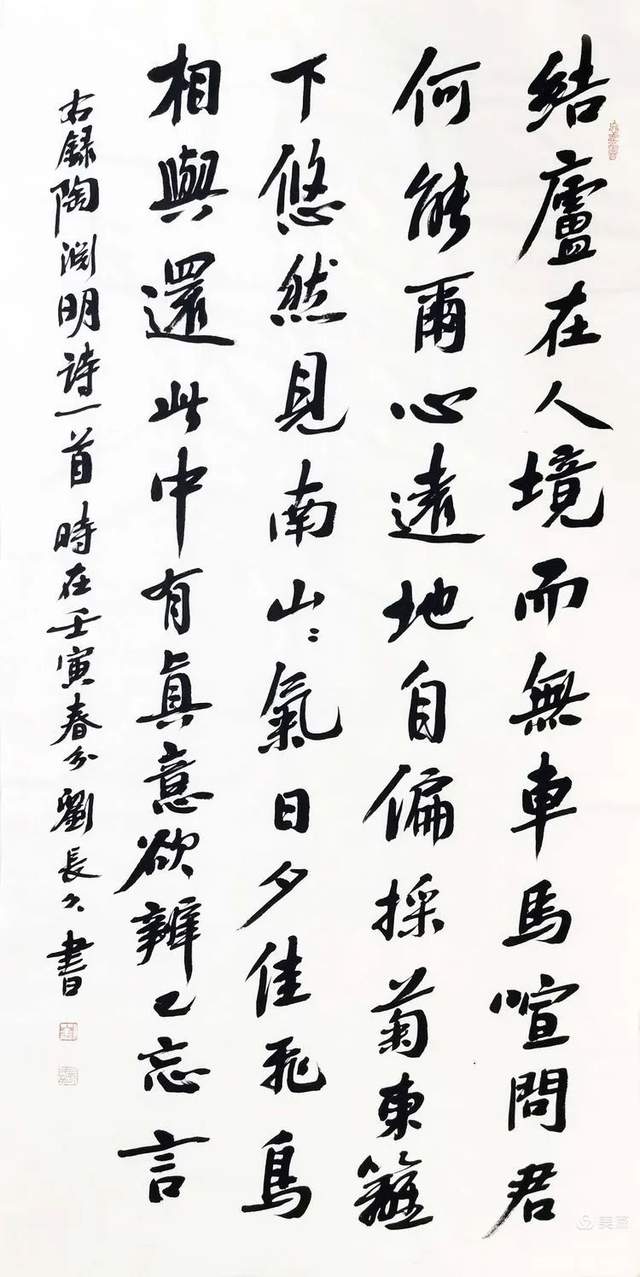 結廬在人境而無車馬喧問君
何能爾心遠地自偏採菊東籬
下悠然見南山〻氣日夕佳飛鳥
相與還此中有眞意欲辨已忘言
右録陶渕明詩一首時在壬寅春分劉長久書
美篇